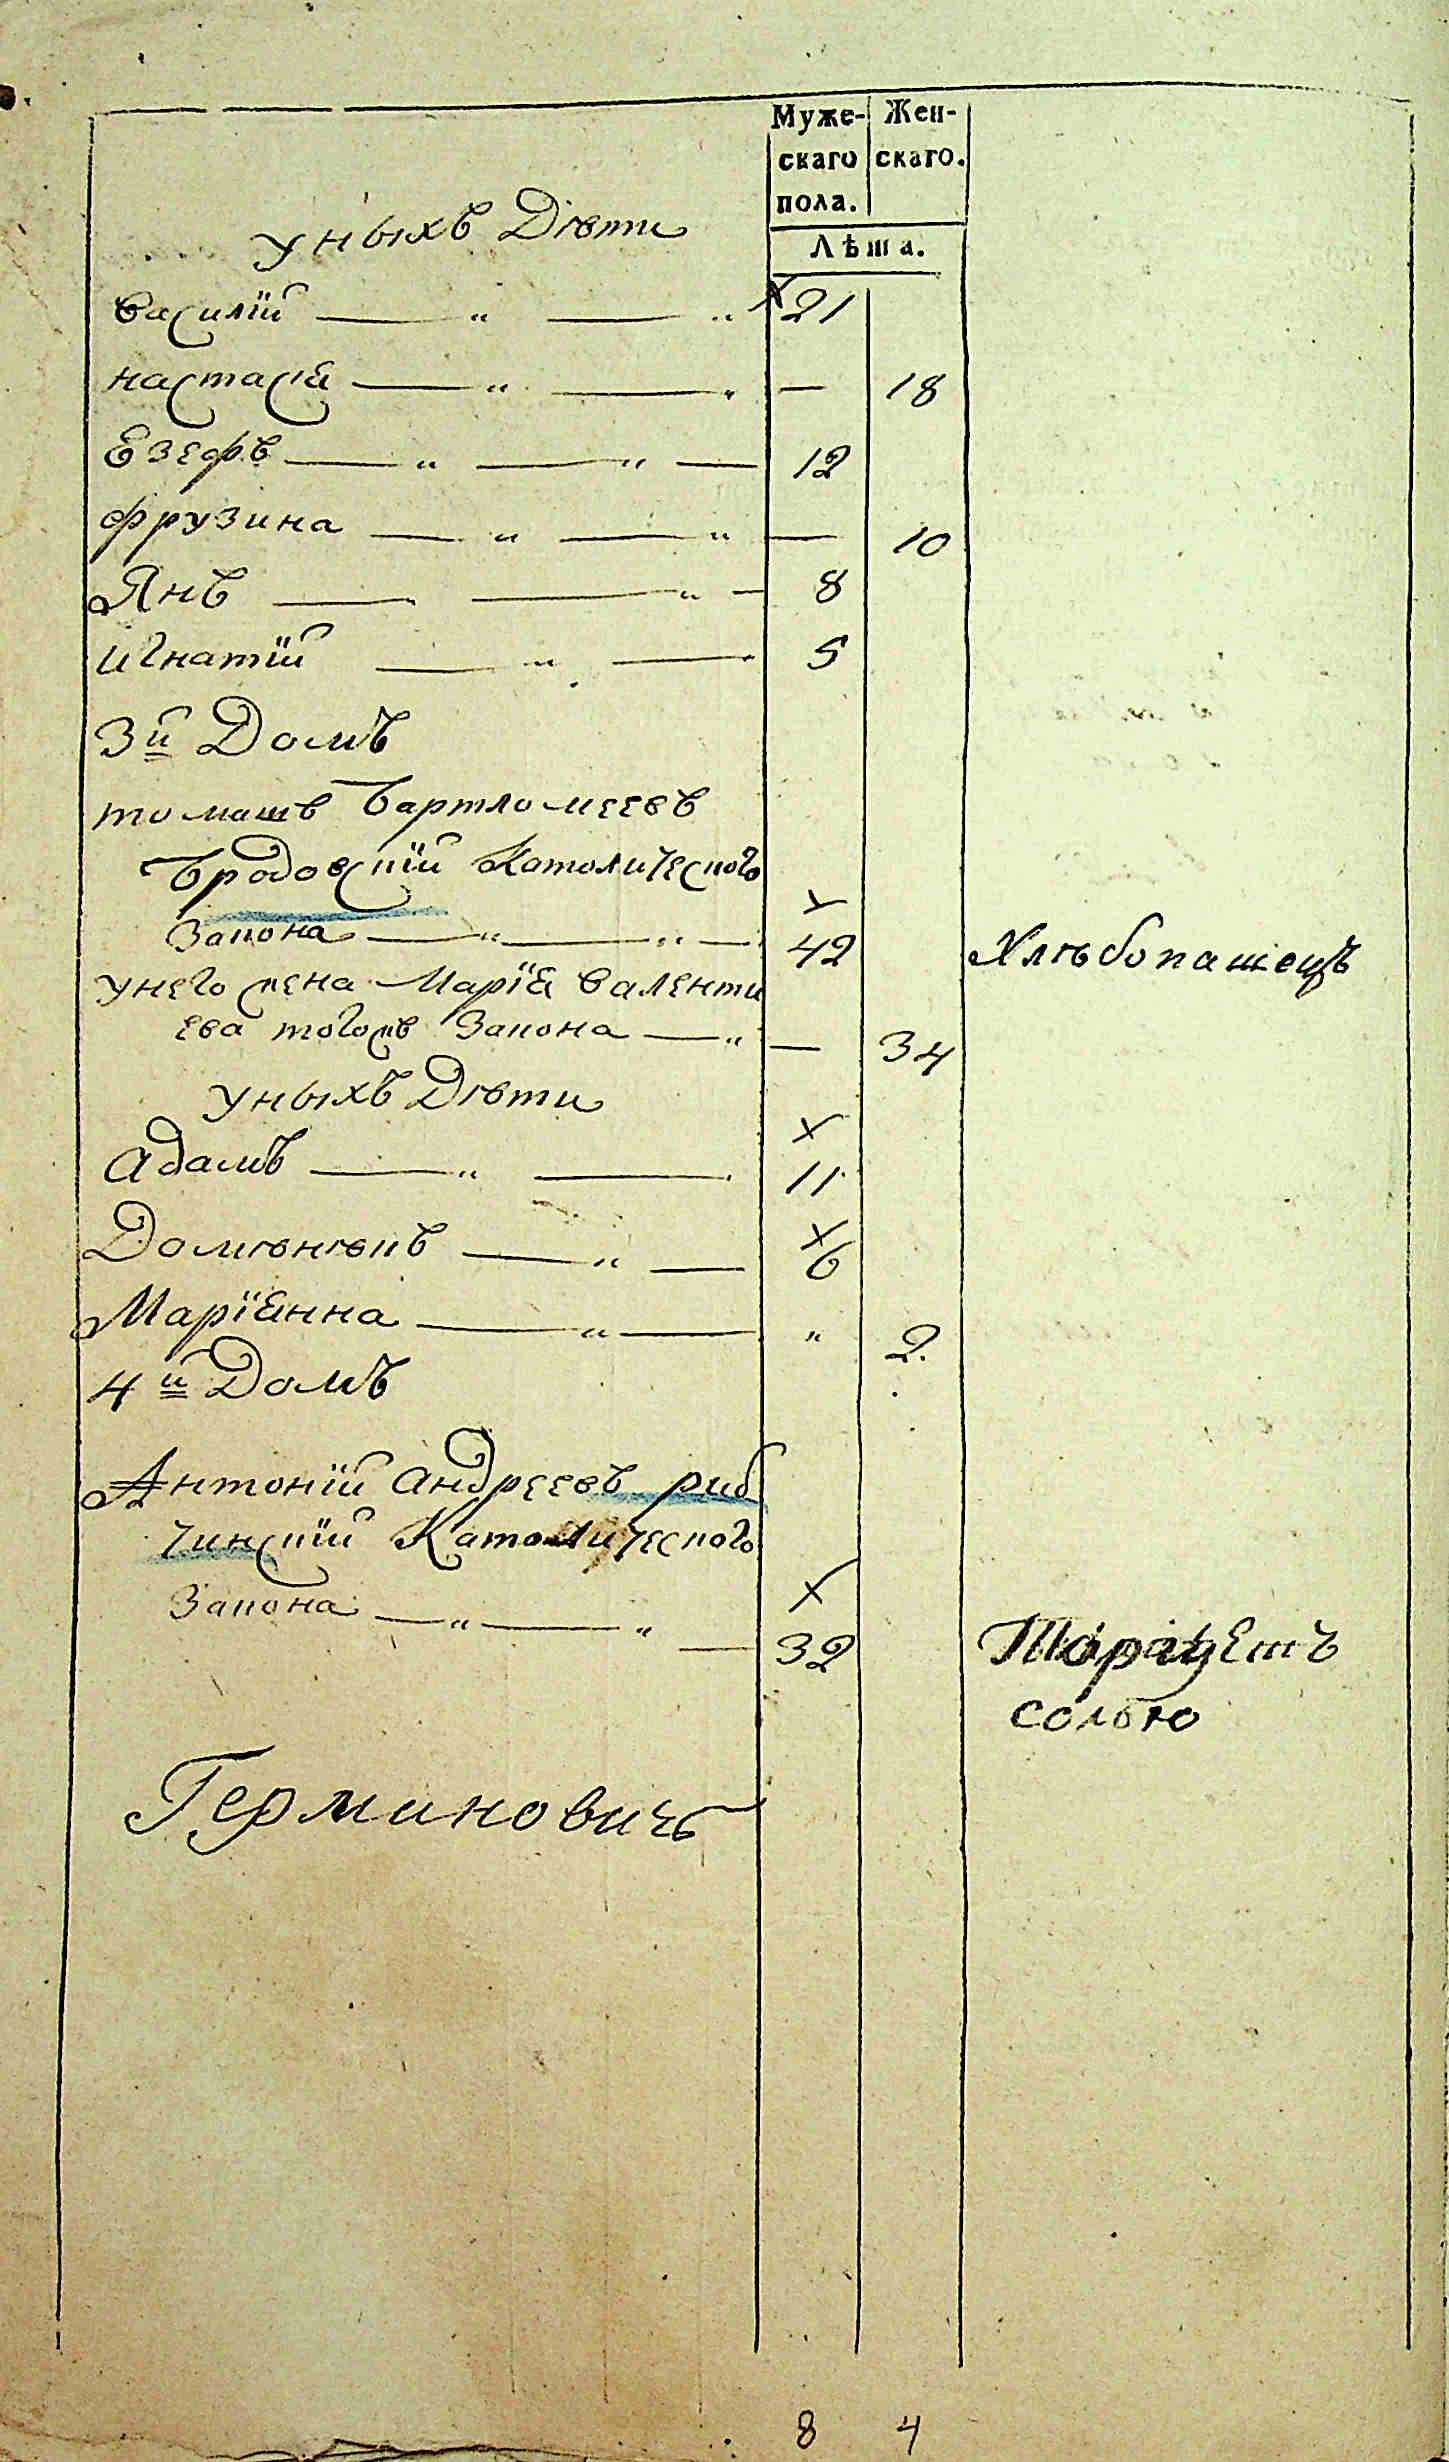 Муже- Жен-
скаго скаго.
пола.
Лѣта.
уныхъ Дѣти
василій — " — " 21
настасія — " — " — 18
Езефъ — " — " — 12
фрузина — " — " — 10
Янъ — — " — 8
игнатій — " — 5
3й Домъ
томашъ Бартломеевъ
Бродовскій Католического
Закона — " — " — 42 Хлѣбопашецъ
унего жена Марія валенти
ева тогожъ Закона — " — 34
уныхъ Дѣти
адамъ — " — 11
Домѣнѣкъ — " — 6
Маріянна — " — " 2.
4й Домъ
Антоній андреевъ риб
чинскій Католического
Закона — " — " — 32 Торгуетъ
солью
Герминовичъ
8 4